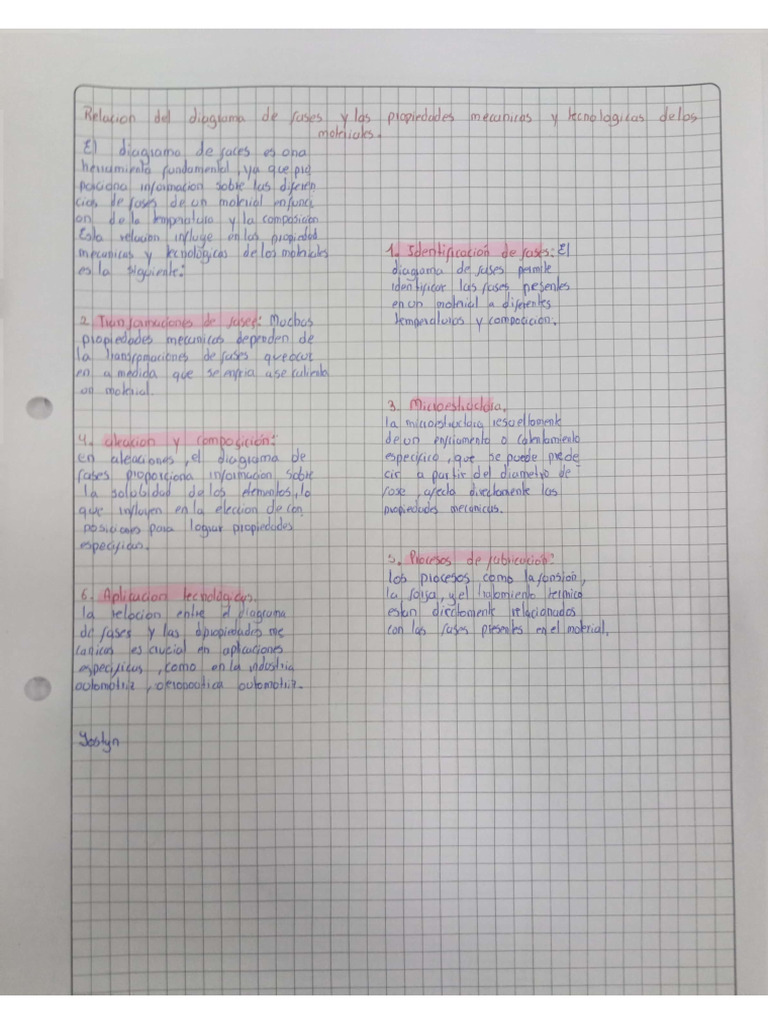 Relacion del diagrama de fases y las propiedades mecanicas y tecnologicas de los
materiales.
El diagrama de faces es una
herramienta fundamental, ya que pro
porciona informacion sobre las diferen
cias de fases de un material en funci
on de la temperatura y la composicion
Esta relacion influye en las propiedad
mecanicas y tecnológicas de los matriales
es la siguiente:
1. Identificación de fases: El
diagrama de fases permite
identificar las fases presentes
en un material a diferentes
temperaturas y composicion.
2. Transformaciones de fases: Muchas
propiedades mecanicas dependen de
la transformaciones de fases que ocur
en a medida que se enfria a se calienta
un material.
3. Microestructura.
la microestructura resueltamente
de un enfriamento o calentamiento
especifico, que se puede prede
cir a partir del diametro de
fase, afecta directamente las
propiedades mecanicas.
4. aleacion y composición:
en aleaciones, el diagrama de
fases proporciona informacion sobre
la solubidad de los elementos, lo
que influyen en la eleccion de con
posiciones para lograr propiedades
especificas.
5. Procesos de fabricación:
los procesos como la fonsion,
la forja, y el tratamiento termico
estan directamente relacionados
con las fases presentes en el material.
6. Aplicacion tecnológicas.
la relacion entre el diagrama
de fases y las propiedades me
canicas es crucial en aplicaciones
especificas, como en la industria
automotriz, automotriz.
Joslyn